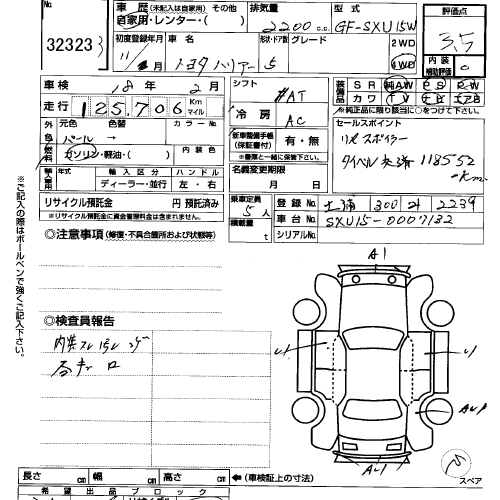 32323
車歴 (未記入は自家用) その他
自家用・レンター・( )
排気量
2200 c.c.
型式
GF-SXU15W
評価点
3.5
初度登録年月
11年 月
車名
トヨタ ハリアー
形状・ドア数
5
グレード
2WD
4WD
内装
補助評価
C
車検
18年 2月
走行
125,706 Km
マイル
シフト
AT
冷房
AC
装備品
SR 純AW PS PW
カワ TV
※純正品に限り該当に○をつけて下さい
外色
元色
色替
カラー No.
パール
燃料
ガソリン・軽油・( )
内装色
新車整備手帳
(保証書付)
有・無
※書類と一緒に保管して下さい。
セールスポイント
リヤスポイラー
タイベル交済 118552
km
輸入車
年式
輸入区分
ハンドル
ディーラー・並行
左・右
名義変更期限
月 日
リサイクル預託金
円 預託済み
※リサイクル預託金に資金管理料金は含まれません。
乗車定員
5人
積載量
t
登録No.
土浦 300 2239
車台No.
SXU15-0007132
シリアルNo.
◎注意事項 (修復・不具合箇所および状態等)
※ご記入の際はボールペンで強くご記入下さい。
◎検査員報告
A1
AW1
A1
スペア
長さ cm
幅 cm
高さ cm
(車検証上の寸法)
希望出品ブロック